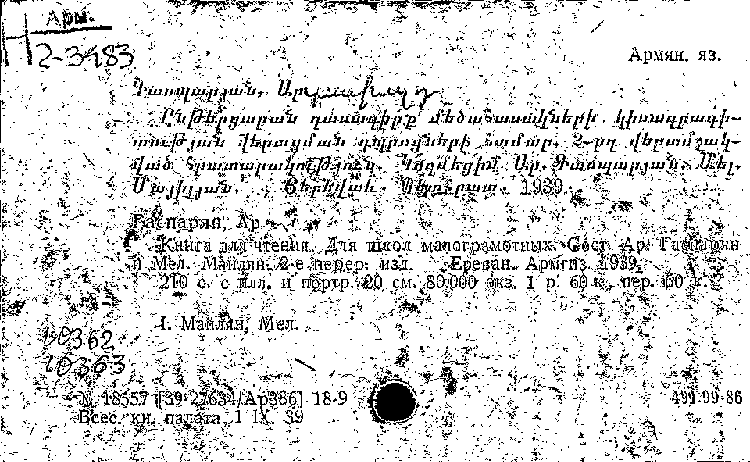 Арм.
2-3483
Армян. яз.
Գասպարյան, Ար
Ընթերցարան դասագիրք մեծահասակների կիսագրագի-
տության վերացման դպրոցների համար. 2-րդ վերամշակ-
ված հրատարակություն. Կազմեցին Ար. Գասպարյան, Մել.
Մայիլյան. Յերևան. 1939
Гаспарян, Ар
Книга для чтения. Для школ малограмотных. Сост. Ар. Гаспарян
и Мел. Маилян. 2-е перер. изд. Ереван. Армгиз. 1939.
210 с. с илл. и портр. 20 см. 80.000 экз. 1 р. 60 к., пер.
I. Маилян, Мел.
10363
N 18557 [39-27634/Ар386] 18-9
499.99-86
Всес. кн. палата 1 IX 39